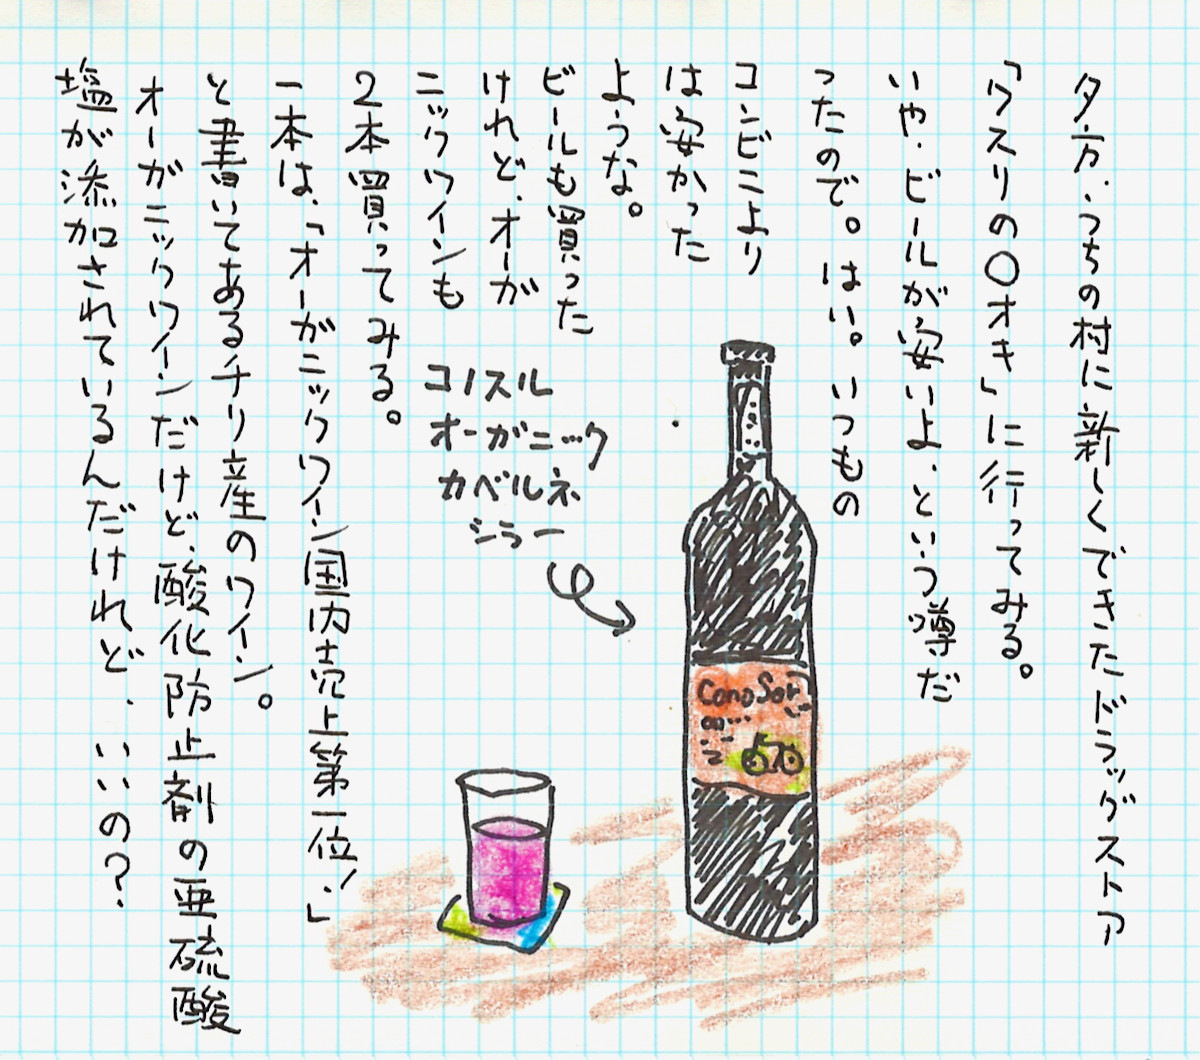 夕方、うちの村に新しくできたドラッグストア
「クスリの〇オキ」に行ってみる。
いや、ビールが安いよ、という噂だ
ったので。はい。いつもの
コンビニより
は安かった
ような。
ビールも買った
けれど、オーガ
ニックワインも
2本買ってみる。
一本は、「オーガニックワイン国内売上第一位!」
と書いてあるチリ産のワイン。
オーガニックワインだけど、酸化防止剤の亜硫酸
塩が添加されているんだけれど、いいの?
コノスル
オーガニック
カベルネ
シラー
Cono Sur